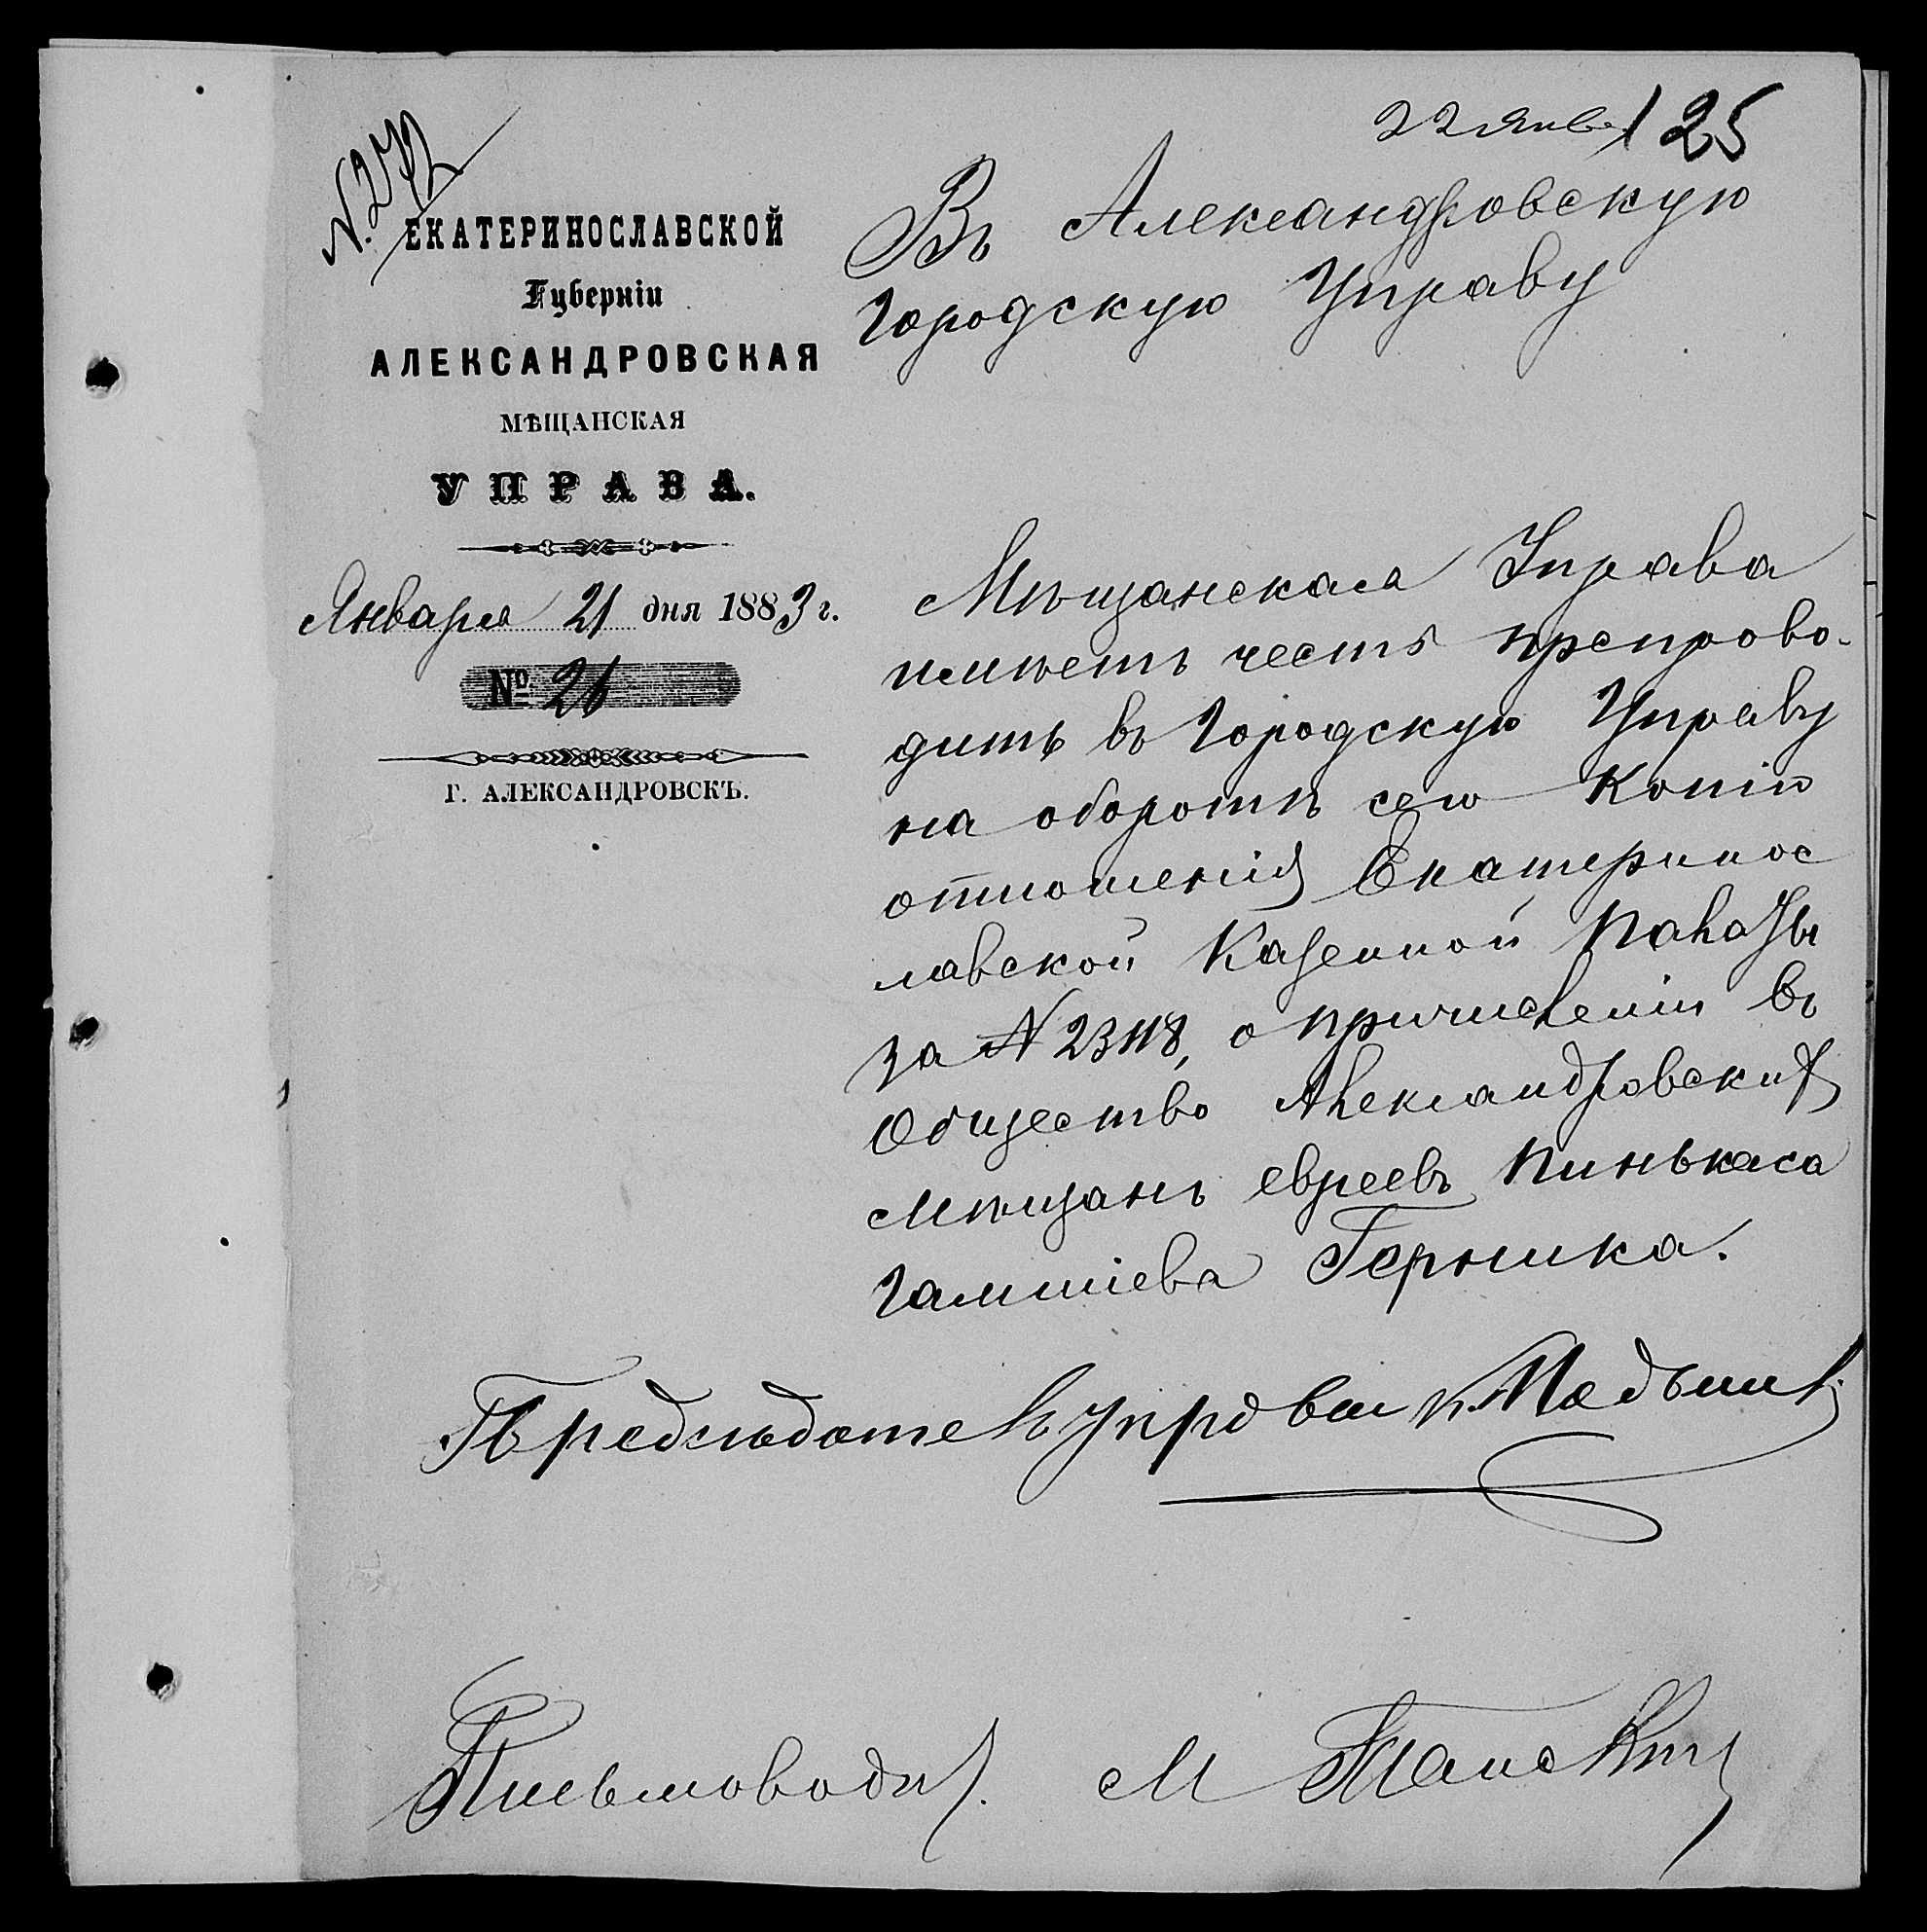 22 янв. 125
N. 272
ЕКАТЕРИНОСЛАВСКОЙ
Губерніи
АЛЕКСАНДРОВСКАЯ
МѢЩАНСКАЯ
УПРАВА.
Января 21 дня 1883 г.
№ 21
Г. АЛЕКСАНДРОВСКЪ.
Въ Александровскую
Городскую Управу
Мѣщанская Управа
имѣетъ честь препрово-
дить въ Городскую Управу
на оборотѣ сего копію
отношенія Екатеринос
лавской Казенной Палаты
за N 23118, о причисленіи въ
Общество Александровскихъ
мѣщанъ евреевъ Пинькаса
Гамшіева Герника.
Предсѣдатель управы
Письмовод. М